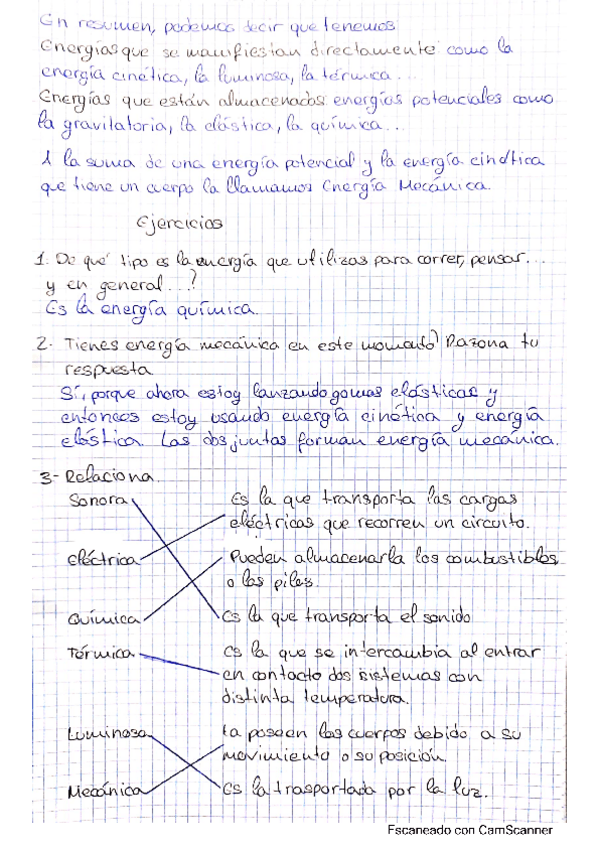 En resumen, podemos decir que tenemos
Energías que se manifiestan directamente como la
energía cinética, la luminosa, la térmica...
Energías que están almacenados energías potenciales como
la gravitatoria, la elástica, la química...
A la suma de una energía potencial y la energía cinética
que tiene un cuerpo la llamamos Energía Mecánica.
Ejercicios
1. De qué tipo es la energía que utilizas para correr, pensar...
y en general...?
Es la energía química.
2. Tienes energía mecánica en este momento? Razona tu
respuesta
Sí, porque ahora estoy lanzando gomas elásticas y
entonces estoy usando energía cinética y energía
elástica. Las dos juntas forman energía mecánica.
3- Relaciona.
Sonora
Es la que transporta las cargas
eléctricas que recorren un circuito.
eléctrica
Pueden almacenarla los combustibles
o las pilas.
Química
Es la que transporta el sonido
Térmica
Es la que se intercambia al entrar
en contacto dos sistemas con
distinta temperatura.
Luminosa
La poseen los cuerpos debido a su
movimiento o su posición.
Mecánica
Es la trasportada por la luz.
Escaneado con CamScanner